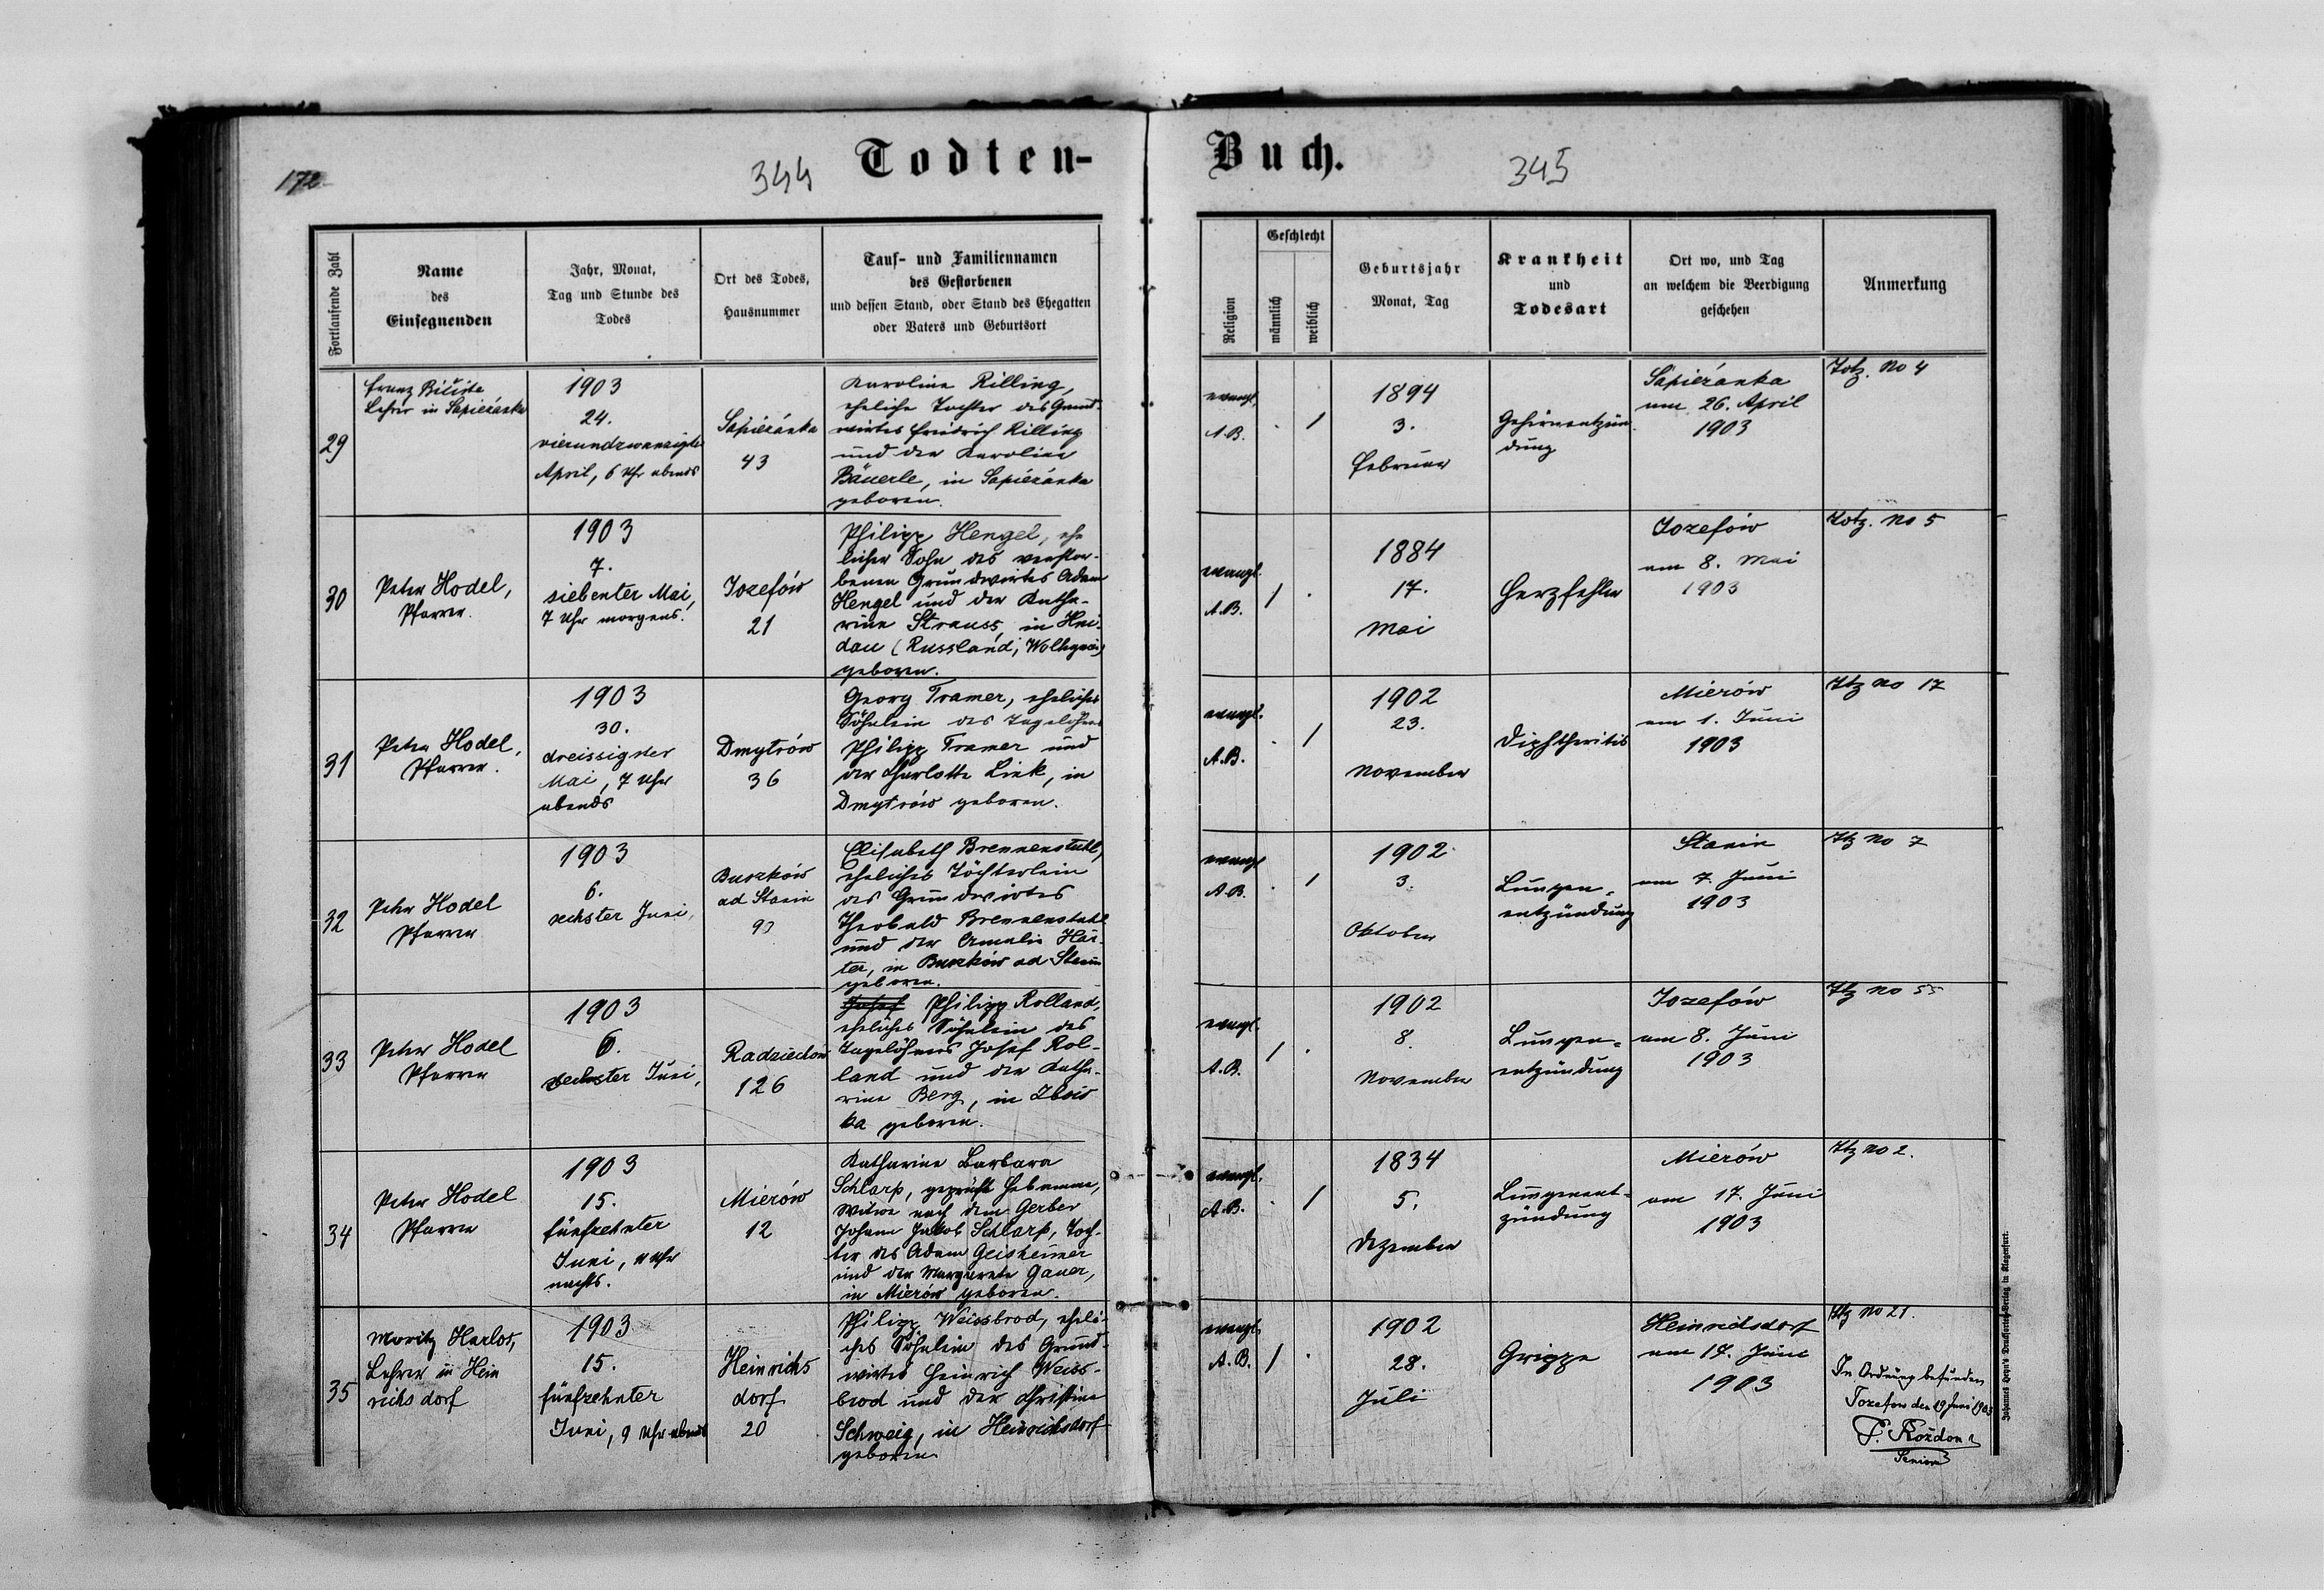 172
344
Todten-
Fortlaufende Zahl
Name
des
Einsegnenden
Jahr, Monat,
Tag und Stunde des
Todes
Ort des Todes,
Hausnummer
Tauf- und Familiennamen
des Gestorbenen
und dessen Stand, oder Stand des Ehegatten
oder Vaters und Geburtsort
29
Franz
Lehrer in Sapieżanka
1903
24.
vierundzwanzigster
April, 6 Uhr abends
Sapieżanka
43
Karoline Rilling,
eheliche Tochter des Grund-
wirtes Friedrich Rilling
und der Karoline
Bäuerle, in Sapieżanka
geboren.
30
Peter Hodel,
Pfarrer.
1903
7.
siebenter Mai,
7 Uhr morgens.
Jozefów
21
Philipp Hengel, ehe
licher Sohn des verstor-
benen Grundwirtes Adam
Hengel und der Katha-
rine Strauss, in Hei-
dau (Russland,
geboren.
31
Peter Hodel,
Pfarrer.
1903
30.
dreissigster
Mai, 7 Uhr
abends
Dmytrów
36
Georg Tramer, eheliches
Söhnlein des Tagelöhners
Philipp Tramer und
der Charlotte Link, in
Dmytrów geboren.
32
Peter Hodel
Pfarrer
1903
6.
sechster Juni,
Buszków
ad Stanin
90
Elisabeth Brennenstuhl,
eheliches Töchterlein
des Grundwirtes
Theobald Brennenstuhl
und der Amalie Här-
ter, in Buszków ad Stanin
geboren.
33
Peter Hodel
Pfarrer
1903
6.
sechster Juni,
Radziechów
126
Josef Philipp Rolland,
eheliches Söhnlein des
Tagelöhners Josef Rol-
land und der Katha-
rine Berg, in
ka geboren.
34
Peter Hodel
Pfarrer
1903
15.
fünfzehnter
Juni, 11 Uhr
nachts.
Mierów
12
Katharina Barbara
Schlarp, geprüfte Hebamme,
Witwe nach dem Gerber
Johann Jakob Schlarp, Toch-
ter des Adam Geisheimer
und der Margarete Gauer,
in Mierów geboren.
35
Moritz Harlos,
Lehrer in Hein
richsdorf
1903
15.
fünfzehnter
Juni, 9 Uhr abends
Heinrichs
dorf
20
Philipp Weissbrod, eheli-
ches Söhnlein des Grund-
wirtes Heinrich Weiss-
brod und der Christine
Schweig, in Heinrichsdorf
geboren
Buch.
345
Religion
Geschlecht
männlich
weiblich
Geburtsjahr
Monat, Tag
Krankheit
und
Todesart
Ort wo, und Tag
an welchem die Beerdigung
geschehen
Anmerkung
evangl.
A.B.
. /
1894
3.
Februar
Gehirnentzün-
dung
Sapieżanka
am 26. April
1903
No 4
evangl.
A.B.
/ .
1884
17.
Mai
Herzfehler
Jozefów
am 8. Mai
1903
No 5
evangl.
A.B.
. /
1902
23.
November
Diphtheritis
Mierów
am 1. Juni
1903
No 17
evangl
A.B.
. /
1902
3.
Oktober
Lungen-
entzündung
Stanin
am 7. Juni
1903
No 7
evangl.
A.B.
/ .
1902
8.
November
Lungen-
entzündung
Jozefów
am 8. Juni
1903
No 55
evangl.
A.B.
. /
1834
5.
Dezember
Lungenent-
zündung
Mierów
am 17. Juni
1903
No 2.
evangl.
A.B.
/ .
1902
28.
Juli
Grippe
Heinrichsdorf
am 17. Juni
1903
No 21.
In Ordnung befunden
Jozefow den 19 Juni 1903
Senior
Johannes Heyn's Druckforten-Verlag in Klagenfurt.